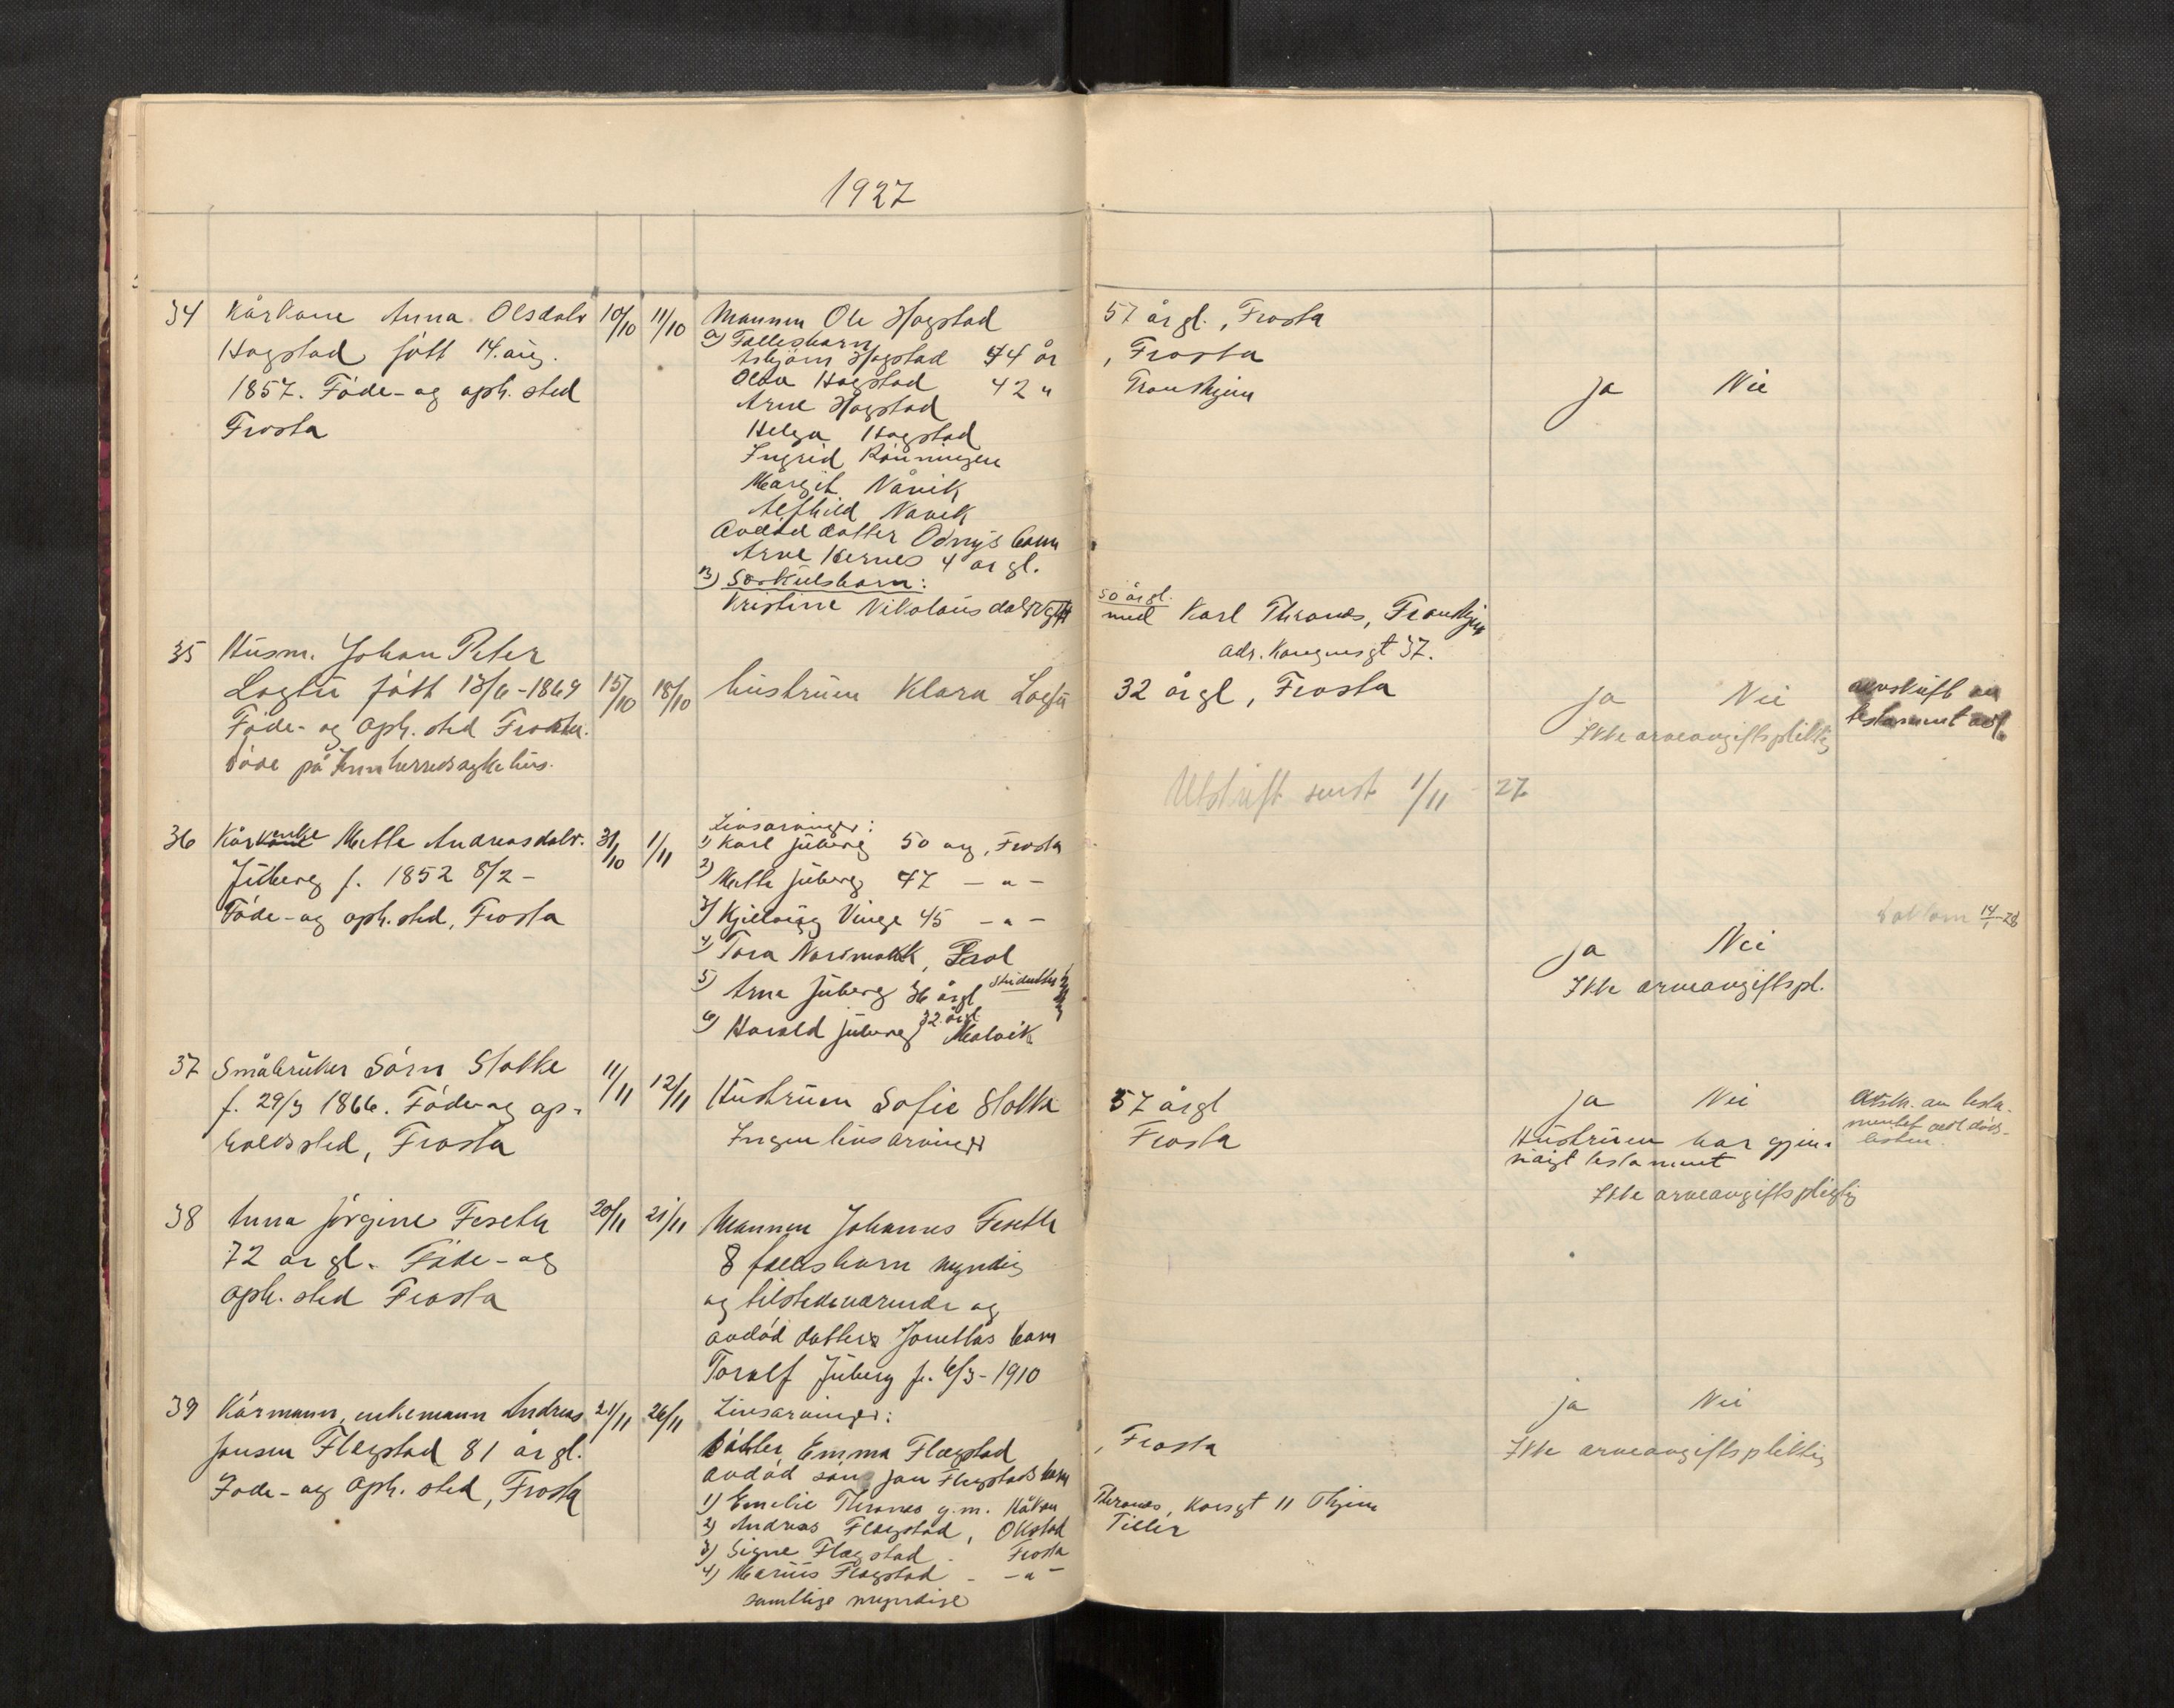 1927
34 Kårkone Anna Olsdatr 10/10 11/10 Mannen Ole Hogstad 57 år gl., Frosta
Hogstad født 14. aug. a) Fællesbarn
1857. Føde- og oph. sted Asbjørn Hogstad 44 år , Frosta
Frosta Olav Hogstad 42 " Trondhjem ja Nei
Arne Hogstad
Helga Hogstad
Ingrid Rønningen
Margit Navik
Alfhild Navik
Avdød datter Odnys barn
Arne Hernes 4 år gl.
B) Særkulsbarn:
Kristine Nikolaus datr g 50 år gl.
med Karl Thrones, Trondhjem
adr. Kongensgt 37.
35 Husm. Johan Peter
Logtu født 13/6-1869 15/10 18/10 hustruen Klara Logtu 32 år gl, Frosta ja Nei avskrift av
Føde- og oph. sted Frosta. Ikke arveavgiftspliktig testament
døde på Innherreds sykehus.
Utskrift sendt 1/11 - 27
36 Kårkone enke Mette Andreasdatr. 31/10 1/11 Livsarvinger:
Juberg f. 1852 8/2 - 1) Karl Juberg 50 år, Frosta
Føde- og oph. sted, Frosta 2) Mette Juberg 47 - " -
3) Kjellaug Vinge 45 - " -
14/1-28
4) Tora Nordmark, ja Nei
5) Arne Juberg 36 år gl Ikke arveavgiftspl.
6) Harald Juberg 32 år gl Malvik
37 Småbruker Sørn Stokke 11/11 12/11 Hustruen Sofie Stokke 57 år gl ja Nei Avskr. av testa-
f. 29/3 1866. Føde og op- Ingen livsarvinger Frosta Hustruen har gjen- mentet vedl døds-
holdssted, Frosta sidigt testament listen.
Ikke arveavgiftspligtig
38 Anna Jørgine Feseth 20/11 21/11 Mannen Johannes Feseth
72 år gl. Føde- og 8 fællesbarn myndig
oph. sted Frosta og tilstedeværende og
avdød datters Jonettas barn
Toralf Juberg f. 6/3-1910
39 Kårmann, enkemann Andreas 21/11 26/11 Livsarvinger: ja Nei
Jonsen Flægstad 81 år gl. Datter Emma Flægstad , Frosta Ikke arveavgiftspliktig
Føde- og oph. sted, Frosta avdød søn Jon Flegstads barn
1) Emelie Thrones g.m. Håkon Thrones, Korsgt 11 Thjem
2) Andreas Flægstad, Okstad Tiller
3) Signe Flægstad - Frosta
4) Marius Flægstad - - " -
samtlige myndige